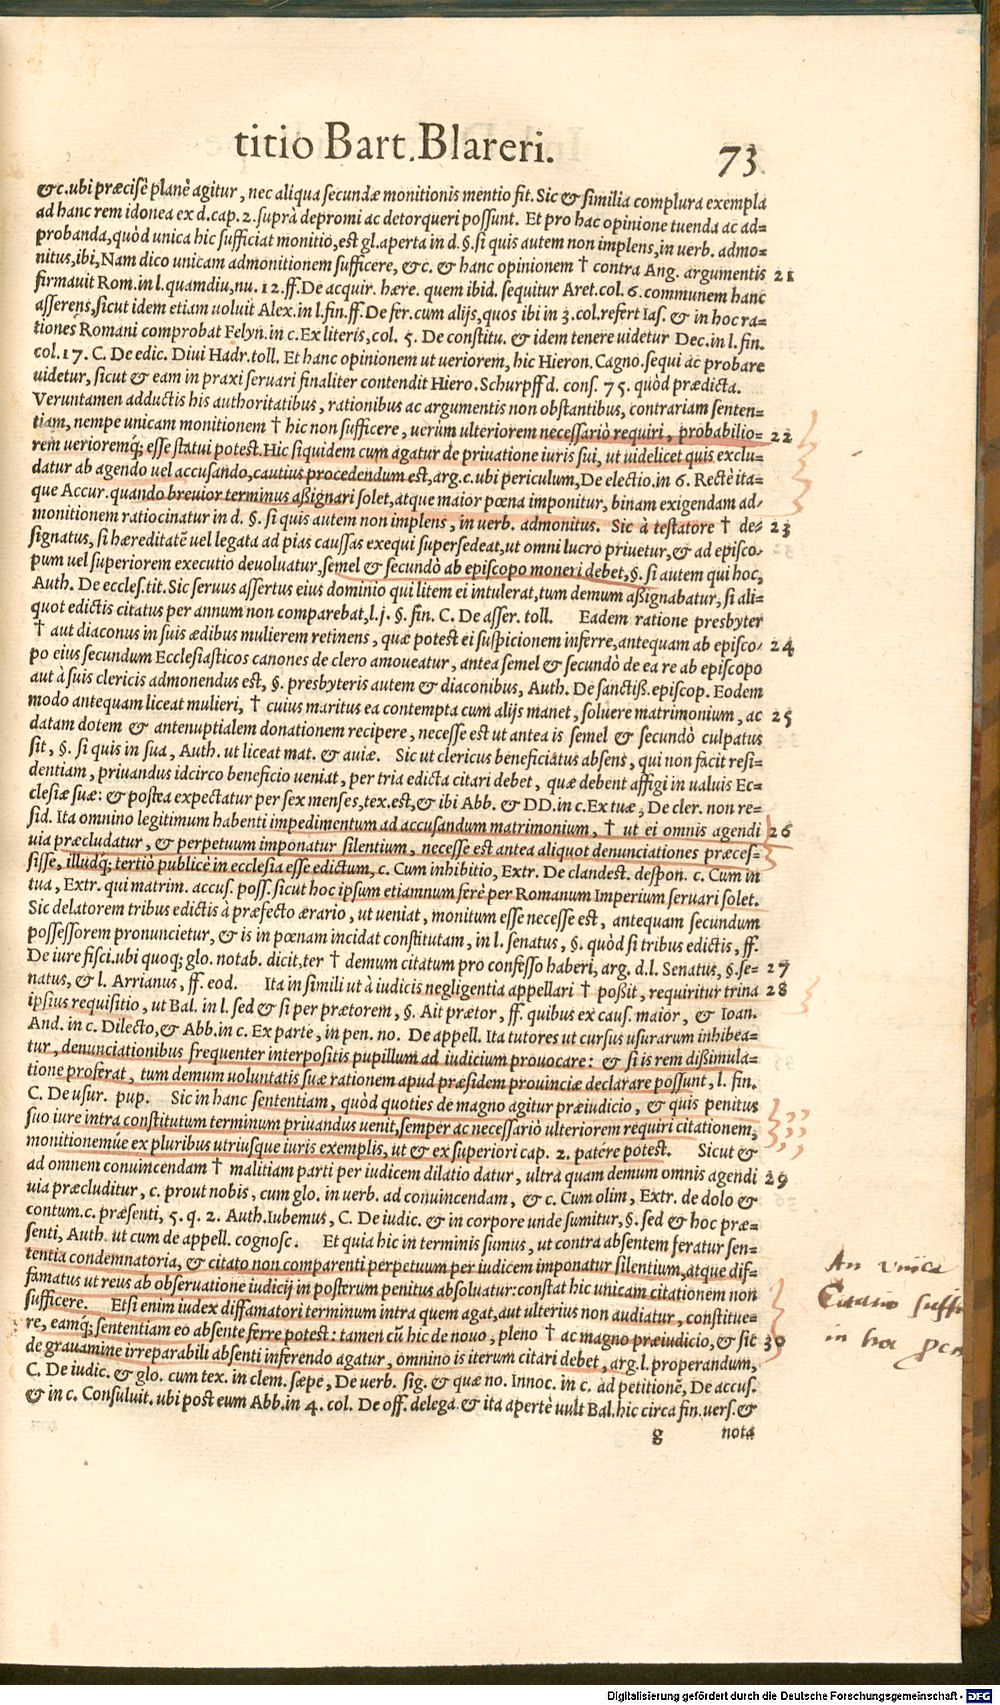 titio Bart. Blareri. 73
&c. ubi præcisè planè agitur, nec aliqua secundæ monitionis mentio fit. Sic & similia complura exempla
ad hanc rem idonea ex d. cap. 2. suprà depromi ac detorqueri possunt. Et pro hac opinione tuenda ac ad=
probanda, quòd unica hic sufficiat monitio, est gl. aperta in d. §. si quis autem non implens, in verb. admo=
nitus, ibi, Nam dico unicam admonitionem sufficere, &c. & hanc opinionem † contra Ang. argumentis 21
firmauit Rom. in l. quamdiu, nu. 12. ff. De acquir. hære. quem ibid. sequitur Aret. col. 6. communem hanc
asserens, sicut idem etiam uoluit Alex. in l. fin. ff. De fer. cum alijs, quos ibi in 3. col. refert Ias. & in hoc ra=
tiones Romani comprobat Felyn. in c. Ex literis, col. 5. De constitu. & idem tenere uidetur Dec. in l. fin.
col. 17. C. De edic. Diui Hadr. toll. Et hanc opinionem ut veriorem, hic Hieron. Cagno. sequi ac probare
uidetur, sicut & eam in praxi seruari finaliter contendit Hiero. Schurpff d. cons. 75. quòd prædicta.
Veruntamen adductis his authoritatibus, rationibus ac argumentis non obstantibus, contrariam senten=
tiam, nempe unicam monitionem † hic non sufficere, uerùm ulteriorem necessariò requiri, probabilio= 22
rem uerioremq́; esse statui potest. Hic siquidem cum agatur de priuatione iuris sui, ut uidelicet quis exclu=
datur ab agendo uel accusando, cautius procedendum est, arg. c. ubi periculum, De electio. in 6. Rectè ita=
que Accur. quando breuior terminus aßignari solet, atque maior pœna imponitur, binam exigendam ad=
monitionem ratiocinatur in d. §. si quis autem non implens, in verb. admonitus. Sic à testatore † de= 23
signatus, si hæreditatē uel legata ad pias caussas exequi supersedeat, ut omni lucro priuetur, & ad episco=
pum uel superiorem executio deuoluatur, semel & secundò ab episcopo moneri debet, §. si autem qui hoc,
Auth. De eccles. tit. Sic seruus assertus eius dominio qui litem ei intulerat, tum demum aßignabatur, si ali=
quot edictis citatus per annum non comparebat, l. j. §. fin. C. De asser. toll. Eadem ratione presbyter
† aut diaconus in suis ædibus mulierem retinens, quæ potest ei suspicionem inferre, antequam ab episco= 24
po eius secundum Ecclesiasticos canones de clero amoueatur, antea semel & secundò de ea re ab episcopo
aut à suis clericis admonendus est, §. presbyteris autem & diaconibus, Auth. De sanctiß. episcop. Eodem
modo antequam liceat mulieri, † cuius maritus ea contempta cum alijs manet, soluere matrimonium, ac 25
datam dotem & antenuptialem donationem recipere, necesse est ut antea is semel & secundò culpatus
sit, §. si quis in sua, Auth. ut liceat mat. & auiæ. Sic ut clericus beneficiatus absens, qui non facit resi=
dentiam, priuandus idcirco beneficio veniat, per tria edicta citari debet, quæ debent affigi in ualuis Ec=
clesiæ suæ: & postea expectatur per sex menses, tex. est, & ibi Abb. & DD. in c. Ex tuæ, De cler. non re=
sid. Ita omnino legitimum habenti impedimentum ad accusandum matrimonium, † ut ei omnis agendi 26
uia præcludatur, & perpetuum imponatur silentium, necesse est antea aliquot denunciationes præces=
sisse, illudq́; tertiò publicè in ecclesia esse edictum, c. Cum inhibitio, Extr. De clandest. despon. c. Cum in
tua, Extr. qui matrim. accus. poss. sicut hoc ipsum etiamnum ferè per Romanum Imperium seruari solet.
Sic delatorem tribus edictis à præfecto ærario, ut veniat, monitum esse necesse est, antequam secundum
possessorem pronuncietur, & is in pœnam incidat constitutam, in l. senatus, §. quòd si tribus edictis, ff.
De iure fisci. ubi quoq; glo. notab. dicit, ter † demum citatum pro confesso haberi, arg. d. l. Senatus, §. se= 27
natus, & l. Arrianus, ff. eod. Ita in simili ut à iudicis negligentia appellari † poßit, requiritur trina 28
ipsius requisitio, ut Bal. in l. sed & si per prætorem, §. Ait prætor, ff. quibus ex caus. maior, & Ioan.
And. in c. Dilecto, & Abb. in c. Ex parte, in pen. no. De appell. Ita tutores ut cursus usurarum inhibea=
tur, denunciationibus frequenter interpositis pupillum ad iudicium prouocare: & si is rem dißimula=
tione proferat, tum demum uoluntatis suæ rationem apud præsidem prouinciæ declarare possunt, l. fin.
C. De usur. pup. Sic in hanc sententiam, quòd quoties de magno agitur præiudicio, & quis penitus
suo iure intra constitutum terminum priuandus uenit, semper ac necessariò ulteriorem requiri citationem,
monitionemúe ex pluribus utriusque iuris exemplis, ut & ex superiori cap. 2. patére potest. Sicut &
ad omnem conuincendam † malitiam parti per iudicem dilatio datur, ultra quam demum omnis agendi 29
uia præcluditur, c. prout nobis, cum glo. in verb. ad conuincendam, & c. Cum olim, Extr. de dolo &
contum. c. præsenti, 5. q. 2. Auth. Iubemus, C. De iudic. & in corpore unde sumitur, §. sed & hoc præ=
senti, Auth. ut cum de appell. cognosc. Et quia hic in terminis sumus, ut contra absentem feratur sen=
tentia condemnatoria, & citato non comparenti perpetuum per iudicem imponatur silentium, atque dif=
famatus ut reus ab obseruatione iudicij in posterum penitus absoluatur: constat hic unicam citationem non
sufficere. Etsi enim iudex diffamatori terminum intra quem agat, aut ulterius non audiatur, constitue=
re, eamq́; sententiam eo absente ferre potest: tamen cū hic de nouo, pleno † ac magno præiudicio, & sic 30
de grauamine irreparabili absenti inferendo agatur, omnino is iterum citari debet, arg. l. properandum,
C. De iudic. & glo. cum tex. in clem. sæpe, De verb. sig. & quæ no. Innoc. in c. ad petitionē, De accus.
& in c. Consuluit. ubi post eum Abb. in 4. col. De off. delega. & ita apertè uult Bal. hic circa fin. vers. &
g nota
An vnica
Citatio suff
in hoc
Digitalisierung gefördert durch die Deutsche Forschungsgemeinschaft - DFG